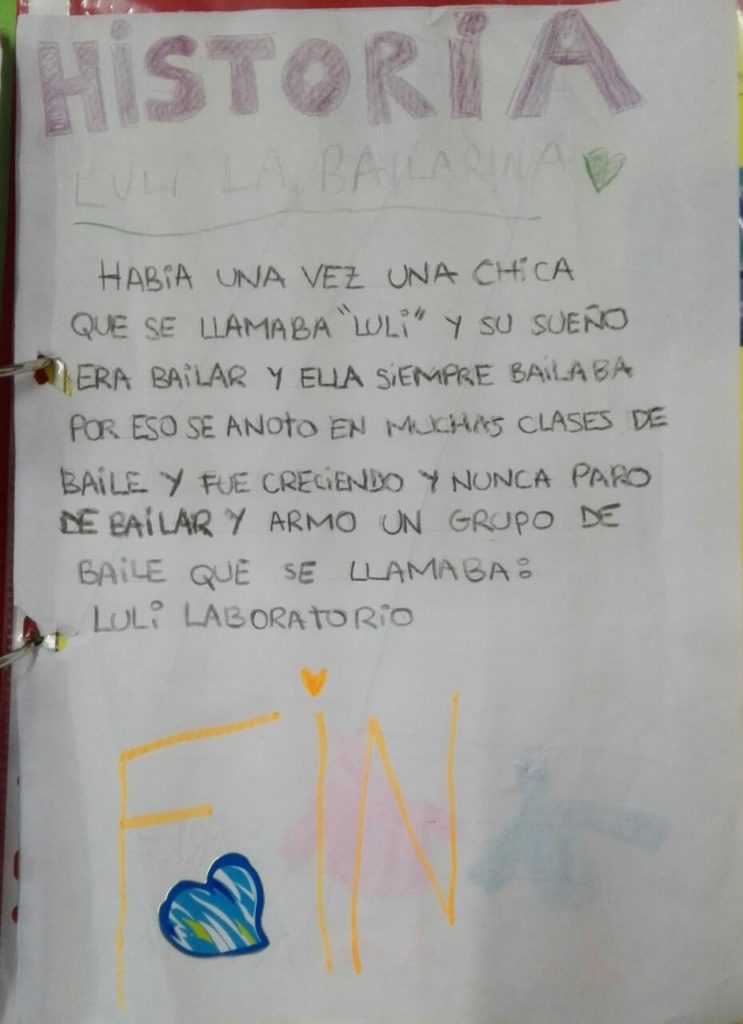 HiSTORiA
LULi LA BAILARINA
HABiA UNA VEZ UNA CHiCA
QUE SE LLAMABA "LULi" Y SU SUEÑO
ERA BAiLAR Y ELLA SiEMPRE BAiLABA
POR ESO SE ANOTO EN MUCHAS CLASES DE
BAiLE Y FUE CRECiENDO Y NUNCA PARO
DE BAiLAR Y ARMO UN GRUPO DE
BAiLE QUE SE LLAMABA:
LULi LABORATORiO
FiN